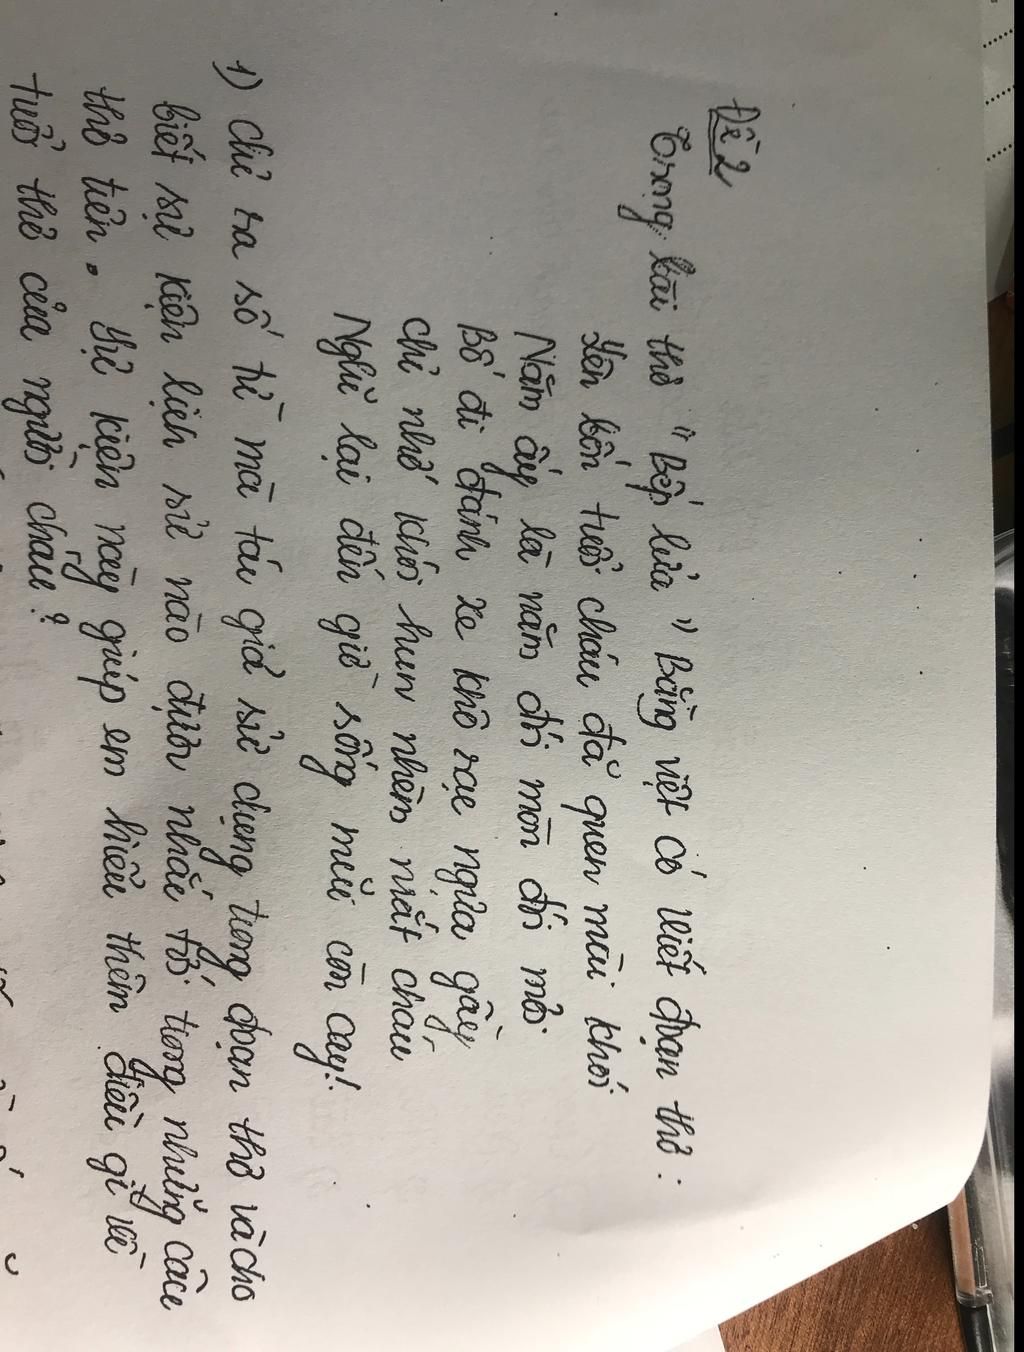 Đề 2
Trong bài thơ "Bếp lửa" Bằng Việt có viết đoạn thơ:
Lên bốn tuổi cháu đã quen mùi khói
Năm ấy là năm đói mòn đói mỏi
Bố đi đánh xe khô rạc ngựa gầy
Chỉ nhớ khói hun nhèm mắt cháu
Nghĩ lại đến giờ sống mũi còn cay!
1) Chỉ ra số từ mà tác giả sử dụng trong đoạn thơ và cho
biết sự kiện lịch sử nào được nhắc tới trong những câu
thơ trên. Sự kiện này giúp em hiểu thêm điều gì về
tuổi thơ của người cháu?